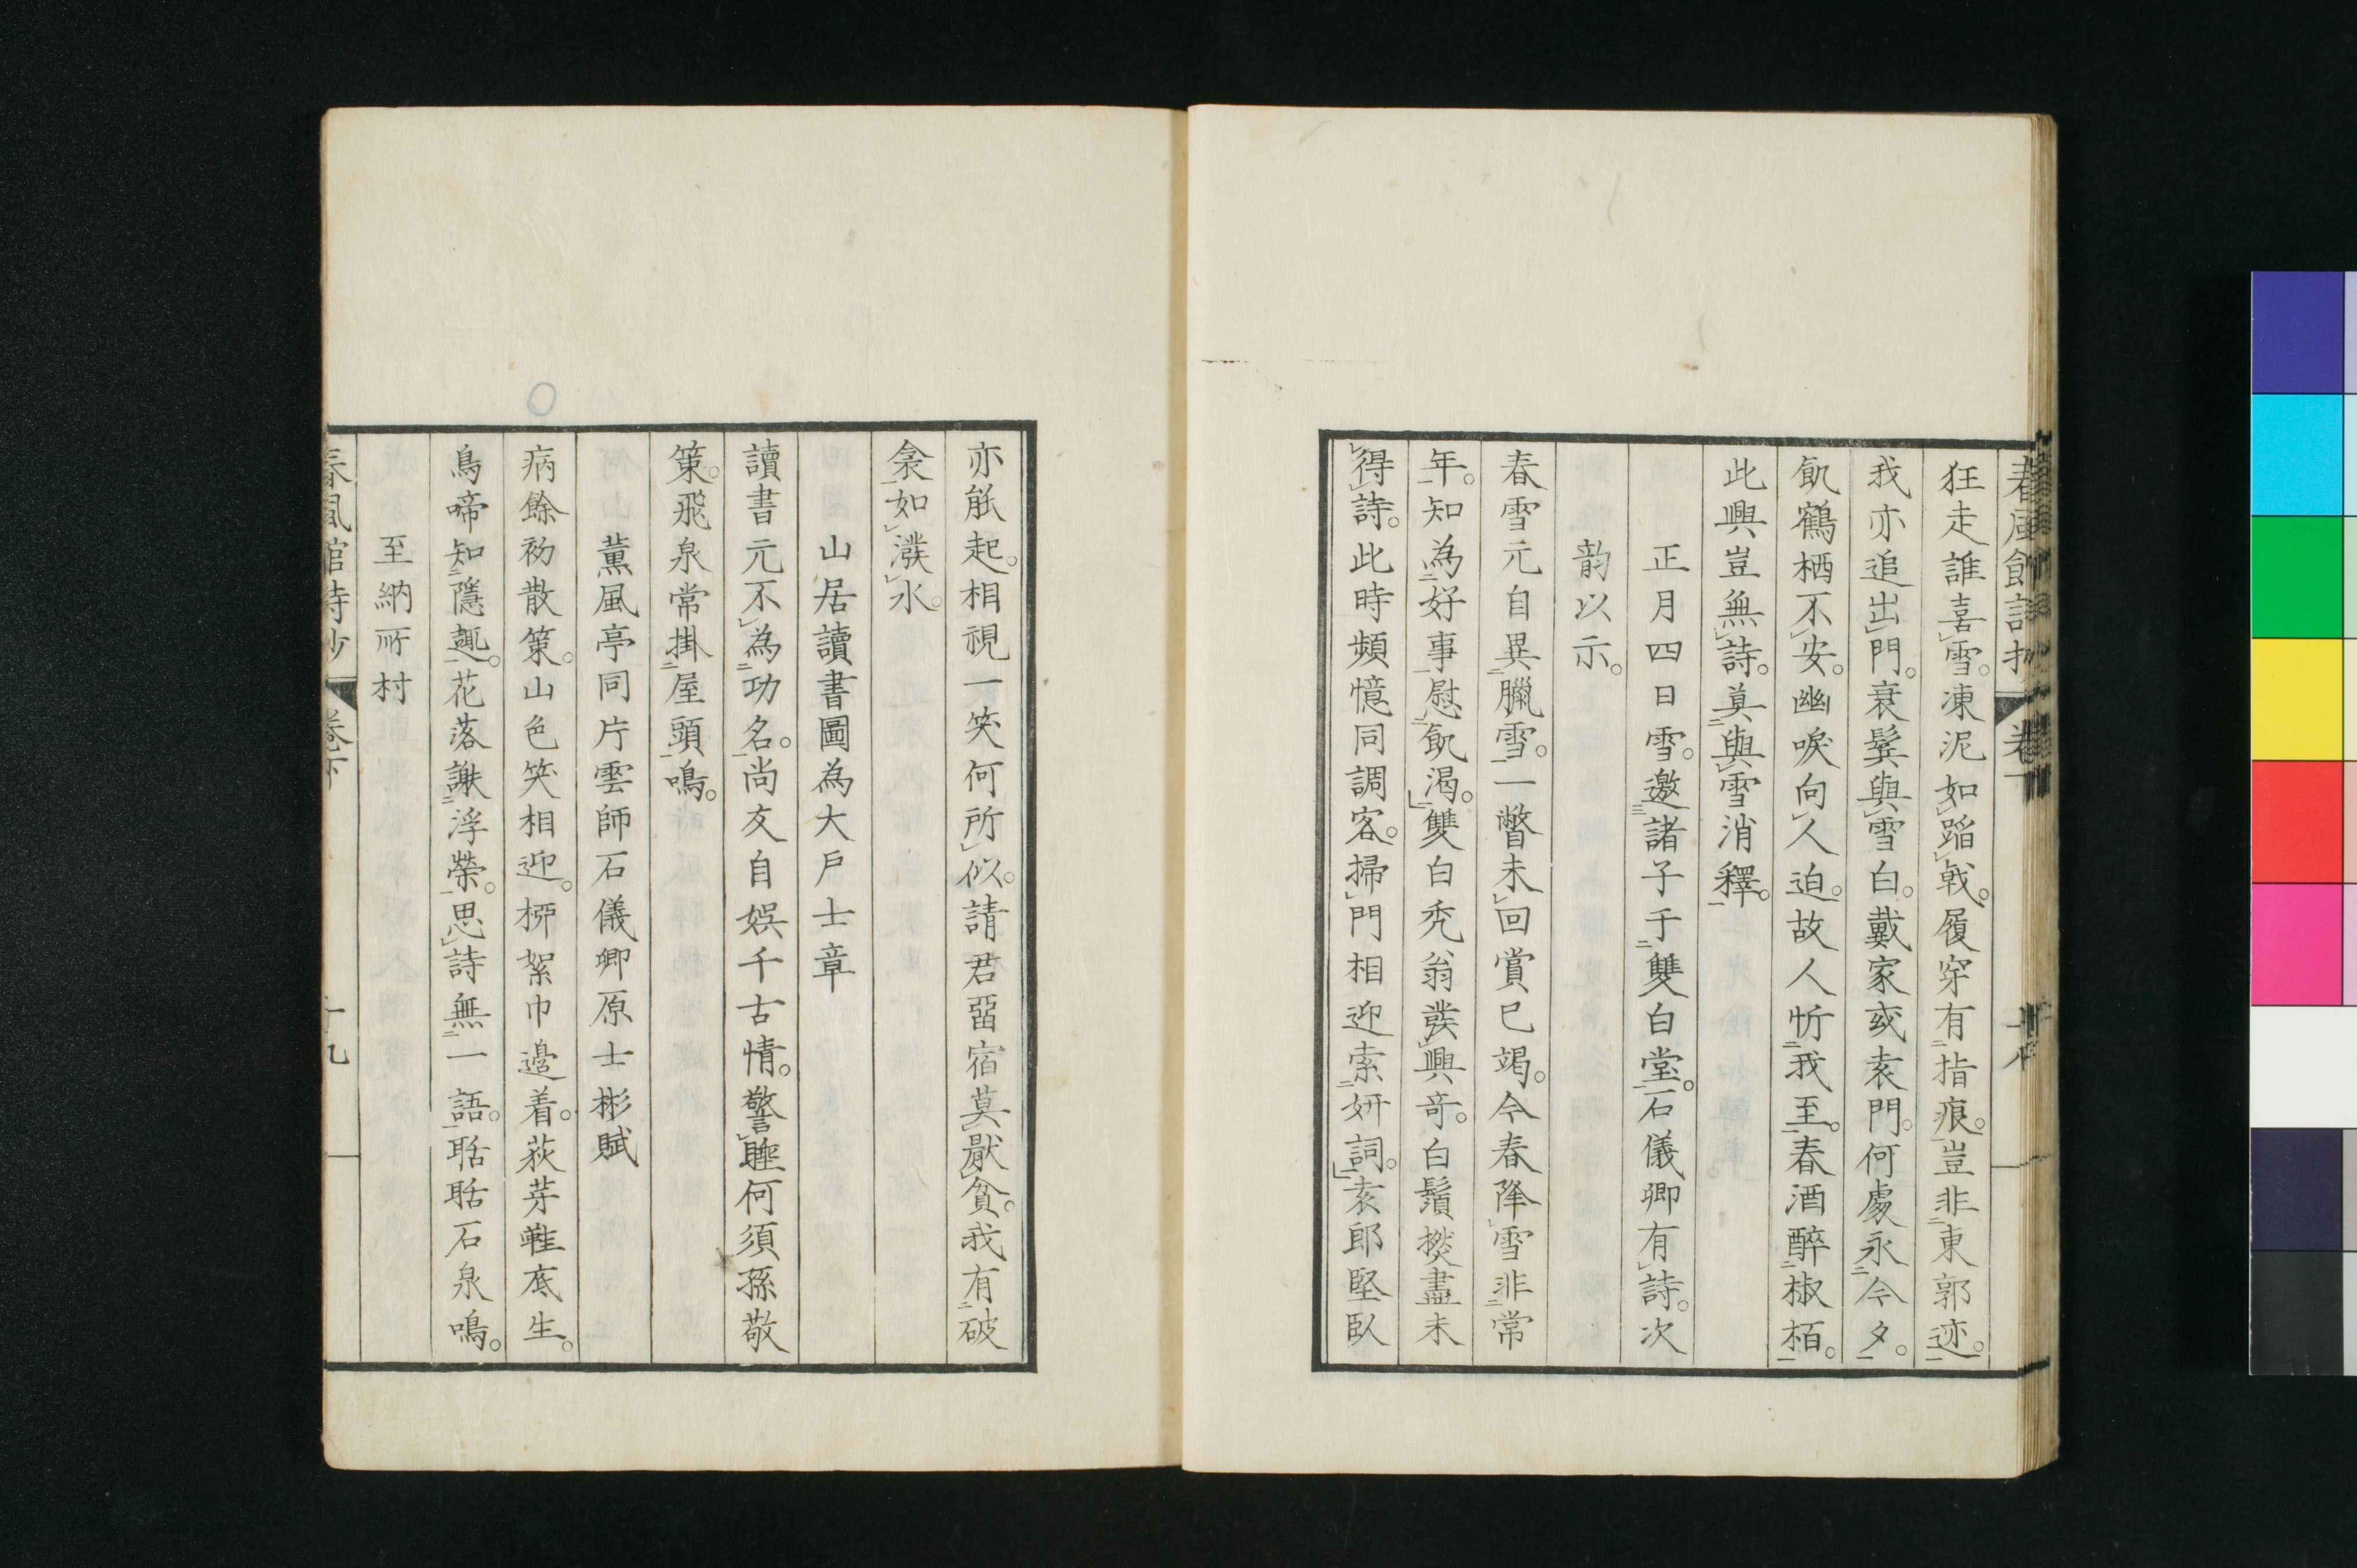 狂走誰喜雪。凍泥如蹈戟。履穿有指痕。豈非東郭迹。
我亦追出門。衰鬂與雪白。戴家或袁門。何處永今夕。
飢鶴栖不安。幽唳向人迫。故人忻我至。春酒醉椒栢。
此興豈無詩。莫與雪消釋。
正月四日雪。邀諸子于雙白堂。石儀卿有詩。次
韵以示。
春雪元自異臘雪。一瞥未回賞已竭。今春降雪非常
年。知為好事慰飢渴。雙白禿翁發興奇。白鬚撚盡未
得詩。此時頻憶同調客。掃門相迎索妍詞。袁郎堅臥
亦能起。相視一笑何所似。請君畱宿莫厭貧。我有破
衾如潑水。
山居讀書圖為大戶士章
讀書元不為功名。尚友自娯千古情。警睡何須孫敬
策。飛泉常掛屋頭鳴。
薫風亭同片雲師石儀卿原士彬賦
病餘初散策。山色笑相迎。桺絮巾邊着。荻芽鞋底生。
鳥啼知隱趣。花落謝浮榮。思詩無一語。聒聒石泉鳴。
至納所村
春風館詩抄 卷下 十九